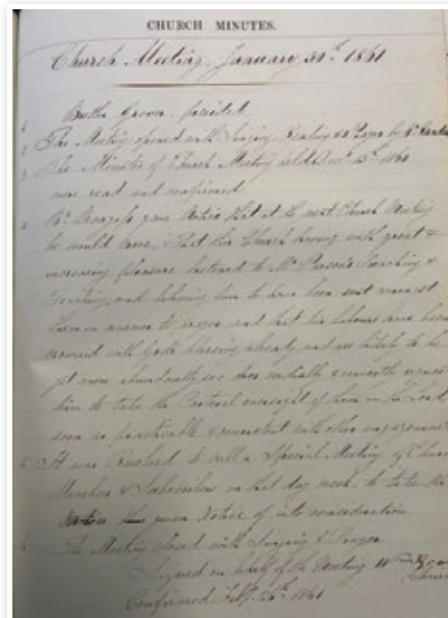 CHURCH MINUTES.
Church Meeting, January 30th 1861
Brother Grover presided
1 The Meeting opened with Singing Reading & Prayer by
2 The Minutes of Church Meeting held 1860
3 were read and confirmed
4 gave Notice that at the next Church Meeting
he would move, That this Church having with great &
increasing pleasure listened to Mr Parsons Preaching &
Teaching, and believing him to have been sent amongst
them in answer to prayer and that his labours have been
crowned with Gods blessing already and are likely to be
yet more abundantly so: does cordially & earnestly request
him to take the Pastoral oversight of them in the Lord
soon as practicable & consistent with other engagements
5 It was Resolved to call a Special Meeting of Church
Members & Subscribers on that day week, to take the
Motion thus given Notice of into consideration
The Meeting closed with Singing & Prayer
Signed on behalf of the Meeting
Confirmed Feby 26th 1861